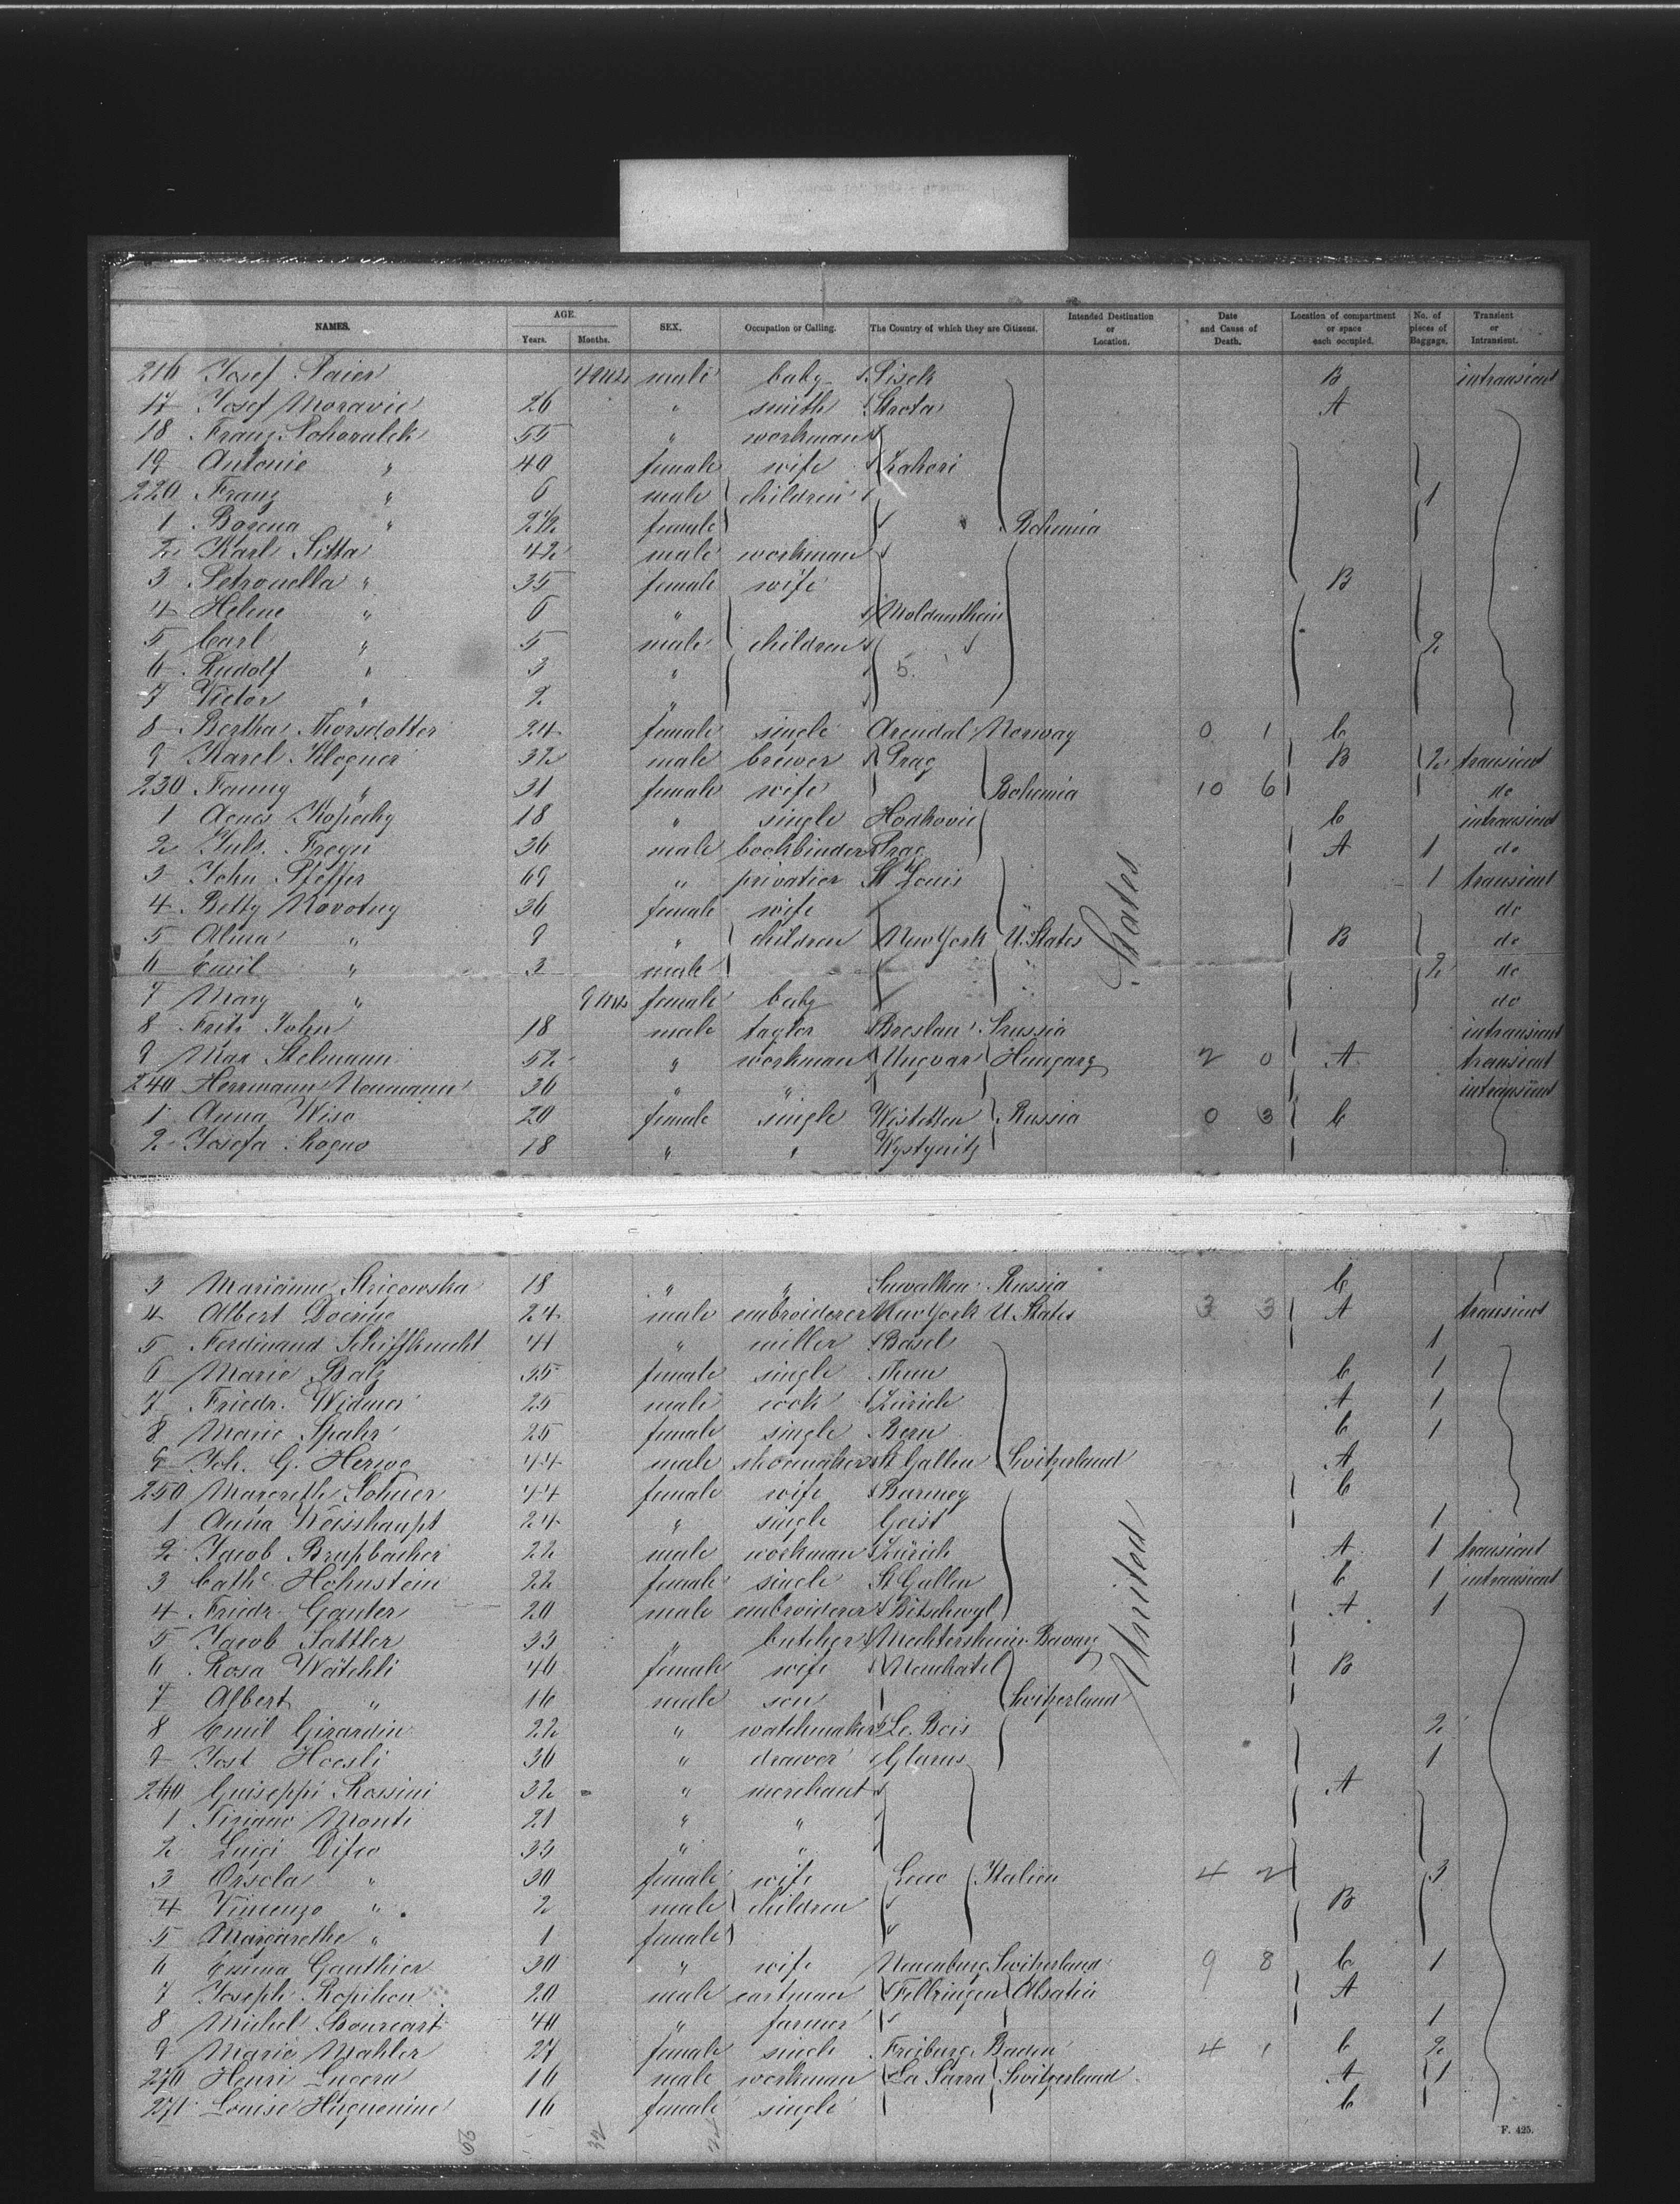 NAMES. AGE. SEX. Occupation or Calling. The Country of which they are Citizens. Intended Destination or Location. Date and Cause of Death. Location of compartment or space each occupied. No. of pieces of Baggage. Transient or Intransient.
Years. Months.
216 Josef Paier 4 Mts male baby Pisek B intransient
17 Josef Moravic 26 " smith Strota A
18 Franz Pohoralek 55 " workman
19 Antonie " 40 female wife Zahori
220 Franz " 6 male children 1
1 Bozena " 2 1/2 female Bohemia
2 Karl Pitta 42 male workman
3 Petronella " 35 female wife B
4 Helene " 6 " Moldauthein
5 Carl " 5 male children 2
6 Rudolf " 3 " 5
7 Victor " 2 "
8 Bertha Thorsdotter 24 female single Arendal Norway 0 1 C
9 Karel Klogner 32 male brewer Prag B 2 transient
230 Fanny " 31 female wife Bohemia 10 6 do
1 Agnes Kopecky 18 " single Hodkovic C intransient
2 Juls. Freyn 36 male bookbinder Prag A 1 do
3 John Pfeffer 69 " privatier St Louis 1 transient
4 Betty Novotny 36 female wife do
5 Alma " 9 " children New York U. States B do
6 Emil " 3 male " 2 do
7 Mary " 9 Mts female baby " do
8 Fritz John 18 male taylor Breslau Prussia intransient
9 Max Stelmann 52 " workman Ungvar Hungary 2 0 A transient
240 Herrmann Neumann 36 " " intransient
1 Anna Wiso 20 female single Wistetten Russia 0 3 C
2 Josefa Rogno 18 " " Wystynitz
3 Marianne Strigowska 18 " " Suwalken Russia C
4 Albert Doering 24 male embroiderer New York U. States 3 3 A transient
5 Ferdinand Schiffknecht 41 " miller Basel 1
6 Marie Balz 35 female single Thun C 1
7 Friedr. Widmer 25 male cook Zürich A 1
8 Marie Spahr 25 female single Bern C 1
9 Joh. G. Herzog 44 male shoemaker St Gallen Switzerland A
250 Margreth Sohner 44 female wife C
1 Anna Weisshaupt 24 " single Geist 1
2 Jacob Brupbacher 22 male workman Zürich A 1 transient
3 Cath. Hohnstein 22 female single St Gallen C 1 intransient
4 Friedr. Ganter 20 male embroiderer Bitschwyl A 1
5 Jacob Sattler 33 " butcher Mechtersheim Bavary
6 Rosa Wätchli 46 female wife Neuchatel B
7 Albert " 16 male son Switzerland
8 Emil Girardin 22 " watchmaker Le Bois 2
9 Jost Hoesli 36 " drawer Glarus 1
260 Guiseppi Rossini 32 " merchant A
1 Tiziano Monti 21 " "
2 Luigi Difeo 33 " "
3 Orsola " 30 female wife Italien 4 2 3
4 Vincenzo " 2 male children B
5 Margarethe " 1 female
6 Emma Gauthier 30 " wife Neuenburg Switzerland 9 8 C 1
7 Joseph Ropihon 20 male cartman Fellringen Alsatia A
8 Michel Bourcart 40 " farmer 1
9 Marie Mahler 27 female single Freiburg Baden 4 1 C 2
270 Henri Lugern 16 male workman La Sarra Switzerland A 1
271 Louise Huguenine 16 female single C
United States
F. 425.